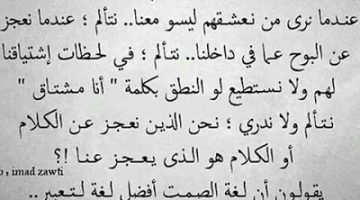 عندما نرى من نعشقهم ليسو معنا.. نتألم ؛ عندما نعجز
عن البوح عما في داخلنا.. نتألم ؛ في لحظات إشتياقنا
لهم ولا نستطيع لو النطق بكلمة " أنا مشتاق "
نتألم ولا ندري ؛ نحن الذين نعجز عن الكلام
أو الكلام هو الذى يعجز عنا !؟
imad zawti
يقولون أن لغة الصمت أفضل لغة لتعبير..